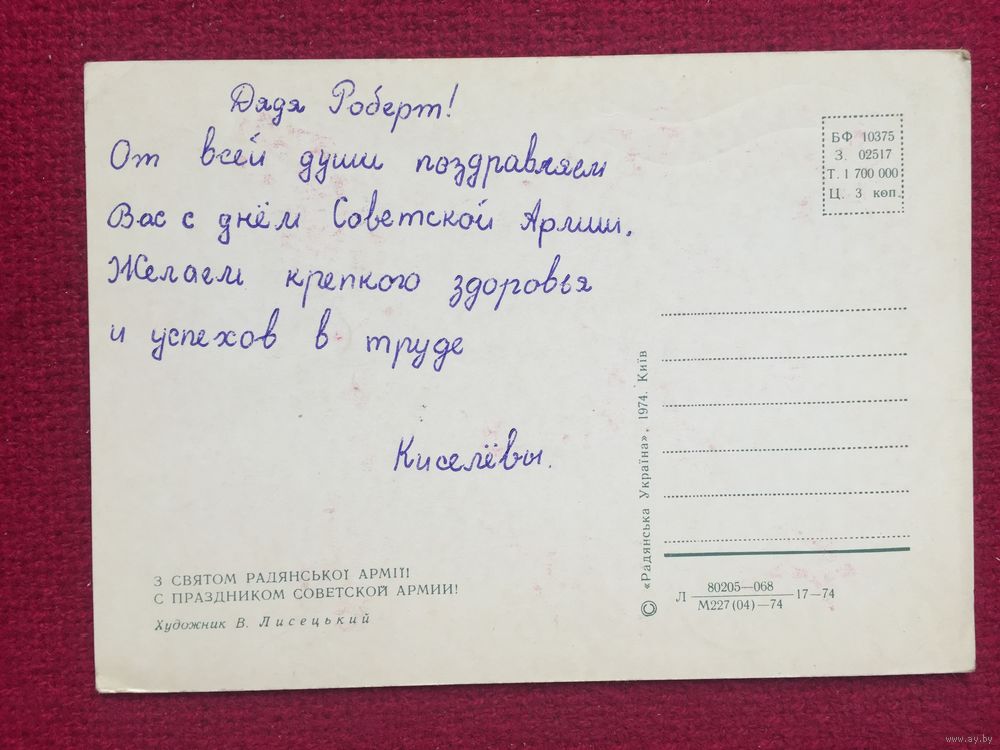 Дядя Роберт!
От всей души поздравляем
Вас с днём Советской Армии.
Желаем крепкого здоровья
и успехов в труде
Киселёвы.
З СВЯТОМ РАДЯНСЬКОЇ АРМІЇ!
С ПРАЗДНИКОМ СОВЕТСКОЙ АРМИИ!
Художник В. Лисецький
БФ 10375
З. 02517
Т. 1 700 000
Ц. 3 коп.
© «Радянська Україна», 1974. Київ
Л 80205—068
М227(04)—74 17—74
www.ay.by